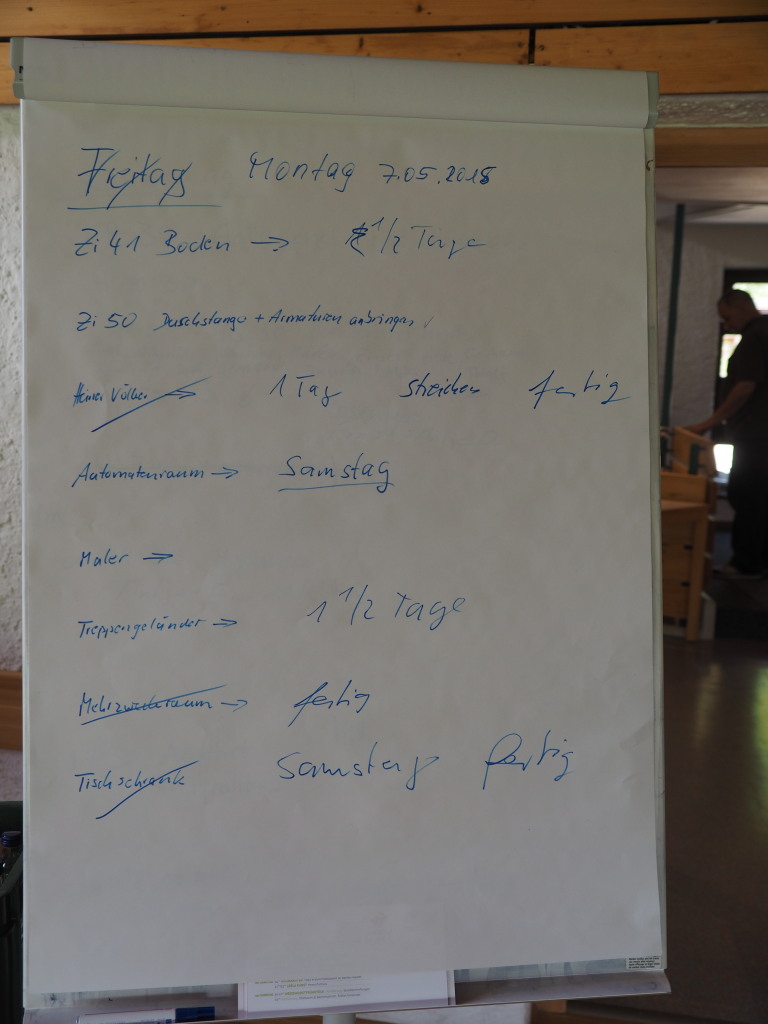 Freitag Montag 7.05.2018
Zi 41 Boden → 1/2 Tage
Zi 50 Duschstange + Armaturen anbringen ✓
Heiner Völker → 1 Tag streichen fertig
Automatenraum → Samstag
Maler →
Treppengeländer → 1 1/2 Tage
Mehrzweckraum → fertig
Tischschrank Samstag fertig